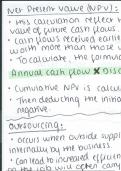 Net Present Value (NPV):
• This calculation reflect
value of future cash flows.
• Cash flows received earlie
worth more than those
• To calculate, the formula
Annual cash flow × Disc
• Cumulative NPV is calcul
• Then deducting the initia
Outsourcing:
• Occurs when outside suppl
internally by the business.
• Can lead to increased efficien
the job will often